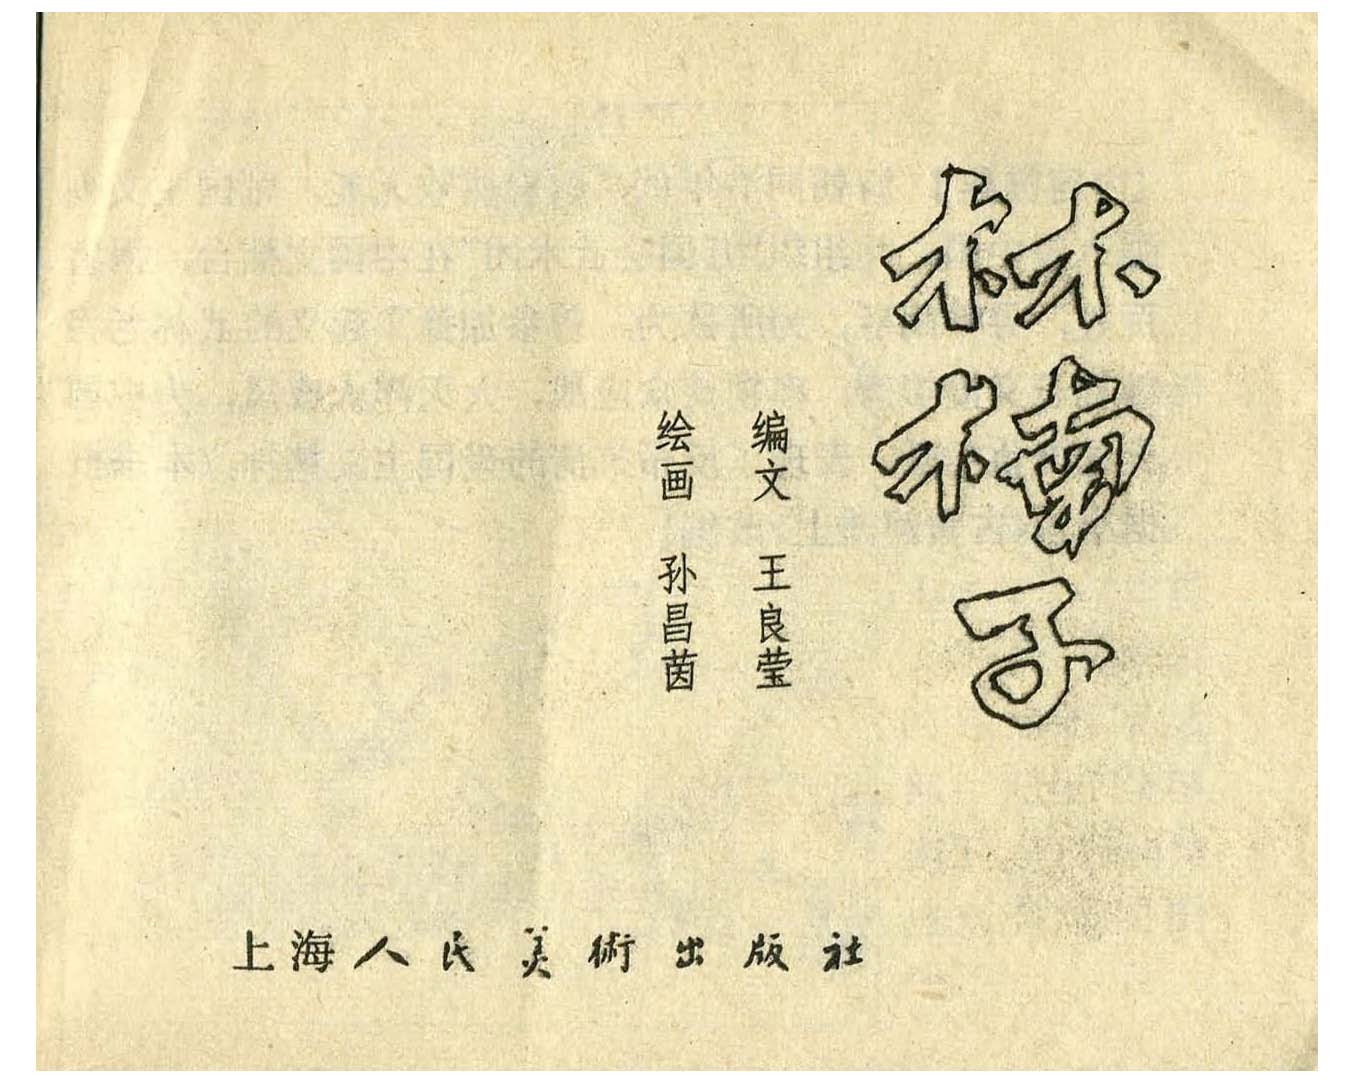 林楠子
编文 王良莹
绘画 孙昌茵
上海人民美術出版社